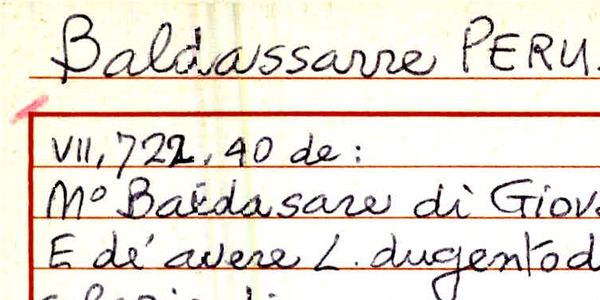 Baldassarre PERU
VII, 722, 40 de:
Mº Baldasare di Giov
E dé avere L. dugentod